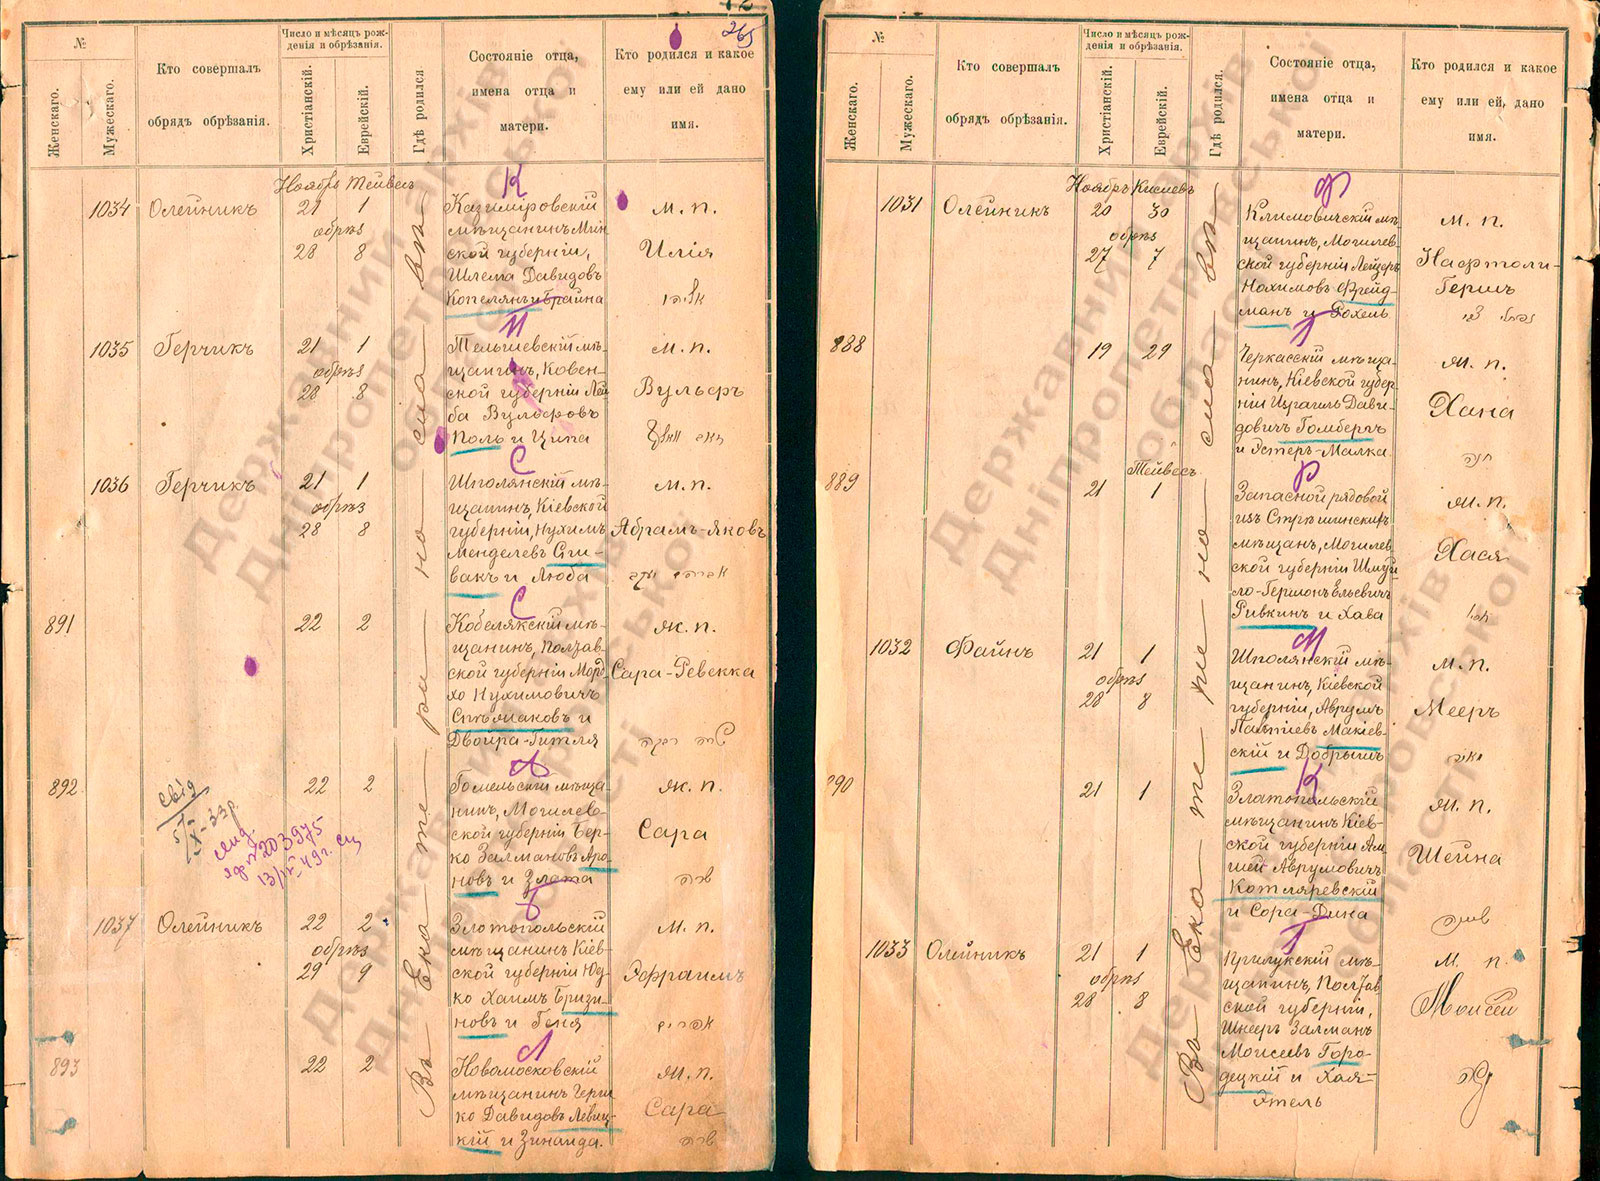 265
№
Женскаго.
Мужескаго.
Кто совершалъ
обрядъ обрѣзанія.
Число и мѣсяцъ рож-
денія и обрѣзанія.
Христіанскій.
Еврейскій.
Гдѣ родился
Состояніе отца,
имена отца и
матери.
Кто родился и какое
ему или ей дано
имя.
Ноябрь Тейвесъ
Въ Екатеринославѣ
1034 Олейникъ 21 1
обрѣз
28 8
К
Казимировскій
мѣщанинъ Мин-
ской губерніи,
Шлема Давидовъ
Копелянъ и Брайна
м. п.
Илія
1035 Герчикъ 21 1
обрѣз
28 8
Тельшевскій мѣ-
щанинъ, Ковен-
ской губерніи Лей
ба Вульфовъ
Поль и Ципа
м. п.
Вульфъ
1036 Герчикъ 21 1
обрѣз
28 8
С
Шполянскій мѣ-
щанинъ, Кіевской
губерніи, Нухимъ
Менделевъ Спи-
вакъ и Люба
м. п.
Абрамъ-Яковъ
891 22 2
С
Кобелякскій мѣ-
щанинъ, Полтав-
ской губерніи Морд
хо Нухимовичъ
Спѣваковъ и
Двойра-Гитля
ж. п.
Сара-Ревекка
שרה רבקה
892 22 2
А
Гомельскій мѣща
нинъ, Могилев-
ской губерніи Бер-
ко Залмановъ Аро-
новъ и Злата
ж. п.
Сара
שרה
1037 Олейникъ 22 2
обрѣз
29 9
Б
Златопольскій
мѣщанинъ Кіев-
ской губерніи Юд-
ко Хаимъ Бризи-
новъ и Геня
м. п.
Эфраимъ
אפרים
893 22 2
Л
Новомосковскій
мѣщанинъ Герш
ко Давидовъ Левиц-
кій и Зинаида.
ж. п.
Сара
שרה
№
Женскаго.
Мужескаго.
Кто совершалъ
обрядъ обрѣзанія.
Число и мѣсяцъ рож-
денія и обрѣзанія.
Христіанскій.
Еврейскій.
Гдѣ родился.
Состояніе отца,
имена отца и
матери.
Кто родился и какое
ему или ей, дано
имя.
Ноябрь Кислевъ
Въ Екатеринославѣ
1031 Олейникъ 20 30
обрѣз
27 7
Ф
Климовичскій мѣ-
щанинъ, Могилев-
ской губерніи Лейзеръ
Нохимовъ Фрейд-
манъ и Рохель
м. п.
Нафтоли-
Гершъ
נפתלי צבי
888 19 29
Черкасскій мѣща-
нинъ, Кіевской губер
ніи Израиль Дави-
довичъ Гомбергъ
и Эстеръ-Малка
ж. п.
Хана
חנה
Тейвесъ
889 21 1
Р
Запасной рядовой
изъ Стрѣшинскихъ
мѣщанъ, Могилев
ской губерніи Шмуй
ло-Гершонъ Ельевичъ
Ривкинъ и Хава
ж. п.
Хася
1032 Файнъ 21 1
обрѣз
28 8
М
Шполянскій мѣ-
щанинъ, Кіевской
губерніи, Аврумъ
Макіев-
скій и Добрышъ
м. п.
Мееръ
מאיר
890 21 1
К
Златопольскій
мѣщанинъ Кіев-
ской губерніи Ам
шей Аврумовичъ
Котляревскій
и Сора-Дина
ж. п.
Шейна
שיינה
1033 Олейникъ 21 1
обрѣз
28 8
Г
Прилукскій мѣ-
щанинъ, Полтав
ской губерніи,
Шнееръ Залманъ
Моисеевъ Горо-
децкій и Хая-
Этель
м. п.
Моисей
משה
Державний архів
Дніпропетровської
області